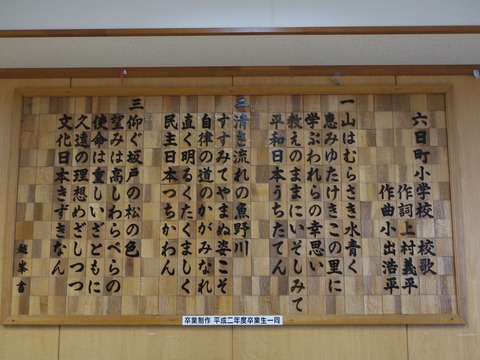 六日町小学校 校歌
作詞 上村義平
作曲 小出浩平
一 山はむらさき水青く
恵みゆたけきこの里に
学ぶわれらの幸思い
教えのままにいそしみて
平和日本うちたてん
二 清き流れの魚野川
すすみてやまぬ姿こそ
自律の道のかがみなれ
直く明るくたくましく
民主日本つちかわん
三 仰ぐ坂戸の松の色
望みは高しわらべらの
使命は重しいざともに
久遠の理想めざしつつ
文化日本きずきなん
越峯書
卒業制作 平成二年度卒業生一同